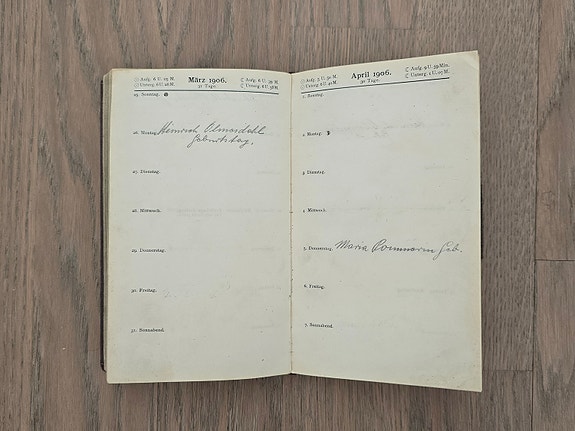 Aufg. 6 U. 05 M.
Unterg. 6 U. 18 M.
März 1906.
31 Tage.
Aufg. 6 U. 39 M.
Unterg. 6 U. 58 M.
25. Sonntag.
26. Montag. Heinrich
Geburtstag.
27. Dienstag.
28. Mittwoch.
29. Donnerstag.
30. Freitag.
31. Sonnabend.
April 1906.
30 Tage.
Aufg. 9 U. 59 Min.
Unterg. 1 U. 07 M.
1. Sonntag.
2. Montag.
3. Dienstag.
4. Mittwoch.
5. Donnerstag. Maria Geb.
6. Freitag.
7. Sonnabend.